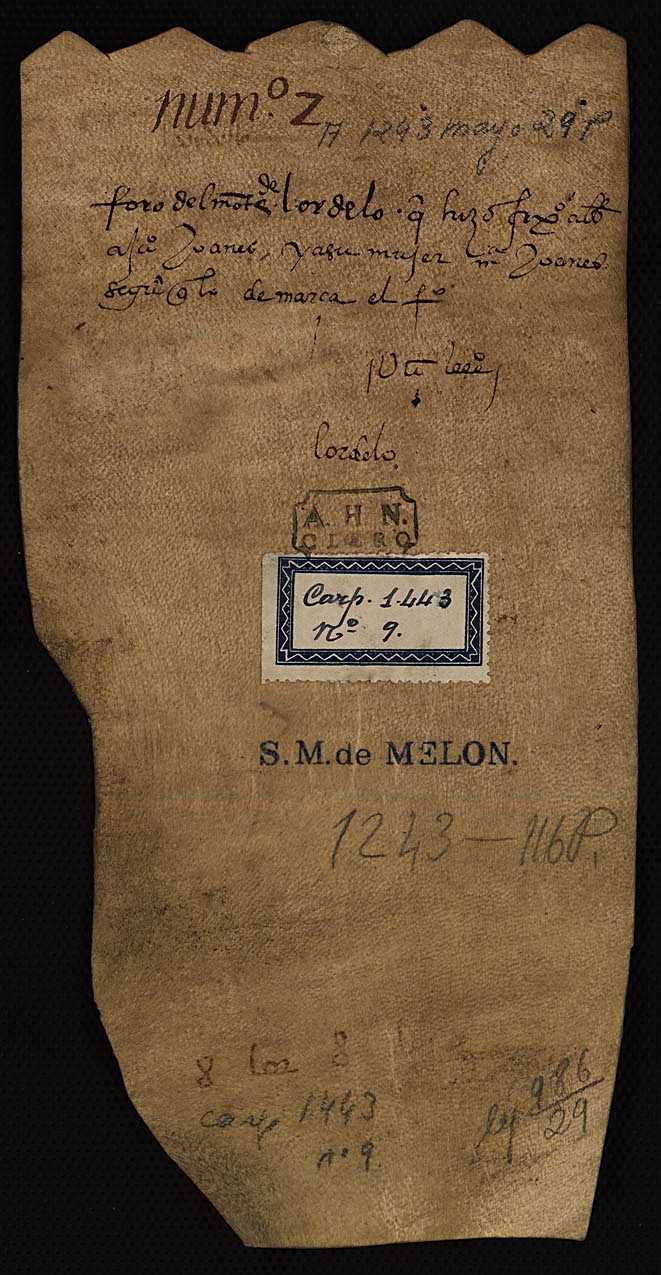 num.º 2
A 1243 mayo 29 P
foro del mōte de lordelo. q̃ hizo
Joanes, y a su mujer mª Joanes
demarca el fº
lordelo
A. H. N.
CLERO
Carp. 1.443
Nº 9.
S.M. de MELON.
1243 — 116 P.
8 lor 8
carp 1443
nº 9
leg 986
29